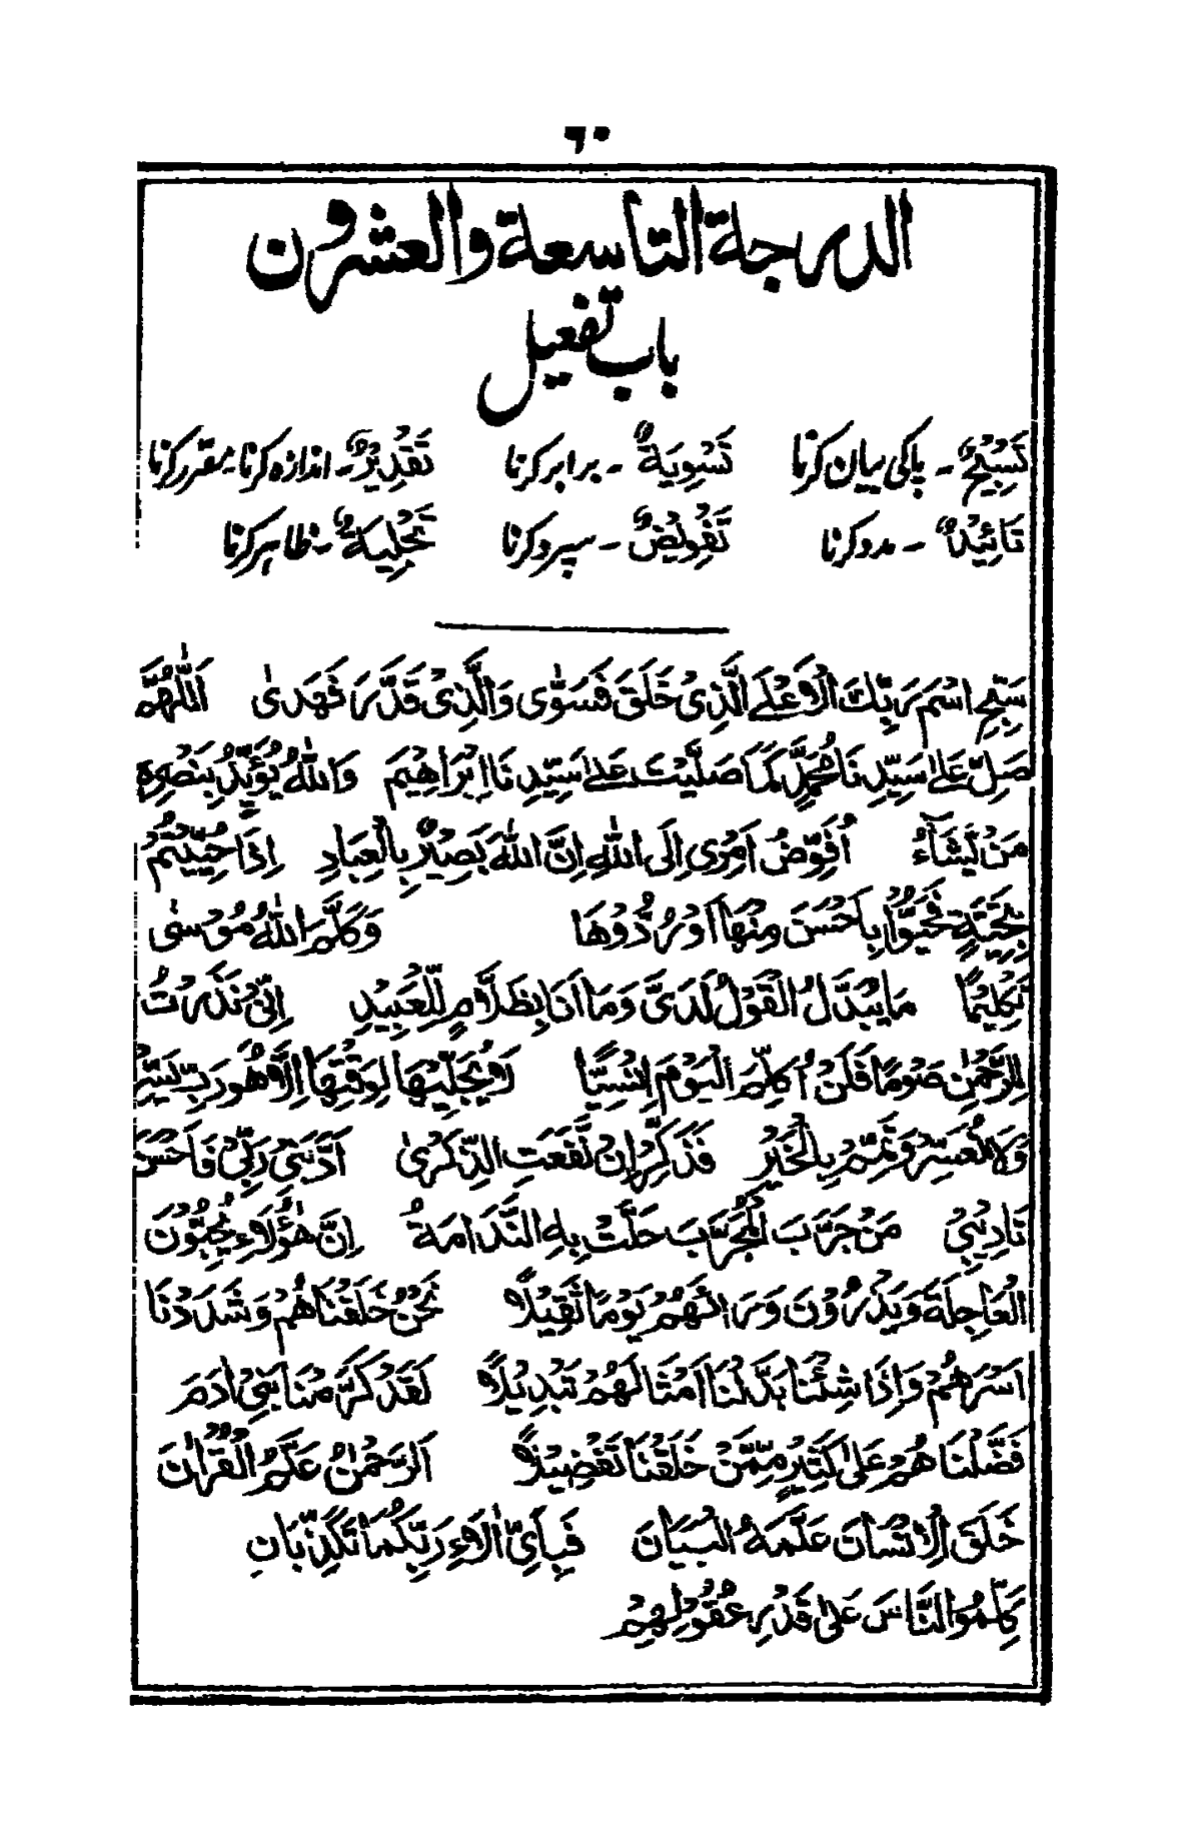 ٦٠
الدرجة التاسعة والعشرون
باب تفعیل
تَسْبِیْحٌ ۔ پاکی بیان کرنا تَسْوِیَةٌ ۔ برابر کرنا تَقْدِیْرٌ ۔ اندازہ کرنا، مقرر کرنا
تَائِیْدٌ ۔ مدد کرنا تَفْوِیْضٌ ۔ سپرد کرنا تَجْلِیَةٌ ۔ ظاہر کرنا
سَبِّحِ اسْمَ رَبِّكَ الْاَعْلَى الَّذِیْ خَلَقَ فَسَوّٰى وَالَّذِیْ قَدَّرَ فَهَدٰى اَللّٰهُمَّ
صَلِّ عَلٰى سَیِّدِنَا مُحَمَّدٍ كَمَا صَلَّیْتَ عَلٰى سَیِّدِنَا اِبْرَاهِیْمَ وَاللّٰهُ یُؤَیِّدُ بِنَصْرِهٖ
مَنْ یَّشَآءُ اُفَوِّضُ اَمْرِیْ اِلَى اللّٰهِ اِنَّ اللّٰهَ بَصِیْرٌ بِالْعِبَادِ اِذَا حُیِّیْتُمْ
بِتَحِیَّةٍ فَحَیُّوْا بِاَحْسَنَ مِنْهَا اَوْ رُدُّوْهَا وَكَلَّمَ اللّٰهُ مُوْسٰى
تَكْلِیْمًا مَا یُبَدَّلُ الْقَوْلُ لَدَیَّ وَمَا اَنَا بِظَلَّامٍ لِّلْعَبِیْدِ اِنِّیْ نَذَرْتُ
لِلرَّحْمٰنِ صَوْمًا فَلَنْ اُكَلِّمَ الْیَوْمَ اِنْسِیًّا لَا یُجَلِّیْهَا لِوَقْتِهَا اِلَّا هُوَ رَبِّ یَسِّرْ
وَلَا تُعَسِّرْ وَتَمِّمْ بِالْخَیْرِ فَذَكِّرْ اِنْ نَّفَعَتِ الذِّكْرٰى اَدَّبَنِیْ رَبِّیْ فَاَحْسَنَ
تَادِیْبِیْ مَنْ جَرَّبَ الْمُجَرَّبَ حَلَّتْ بِهِ النَّدَامَةُ اِنَّ هٰؤُلَاءِ یُحِبُّوْنَ
الْعَاجِلَةَ وَیَذَرُوْنَ وَرَائَهُمْ یَوْمًا ثَقِیْلًا نَحْنُ خَلَقْنَاهُمْ وَشَدَدْنَا
اَسْرَهُمْ وَاِذَا شِئْنَا بَدَّلْنَا اَمْثَالَهُمْ تَبْدِیْلًا لَقَدْ كَرَّمْنَا بَنِیْ اٰدَمَ
فَضَّلْنَاهُمْ عَلٰى كَثِیْرٍ مِّمَّنْ خَلَقْنَا تَفْضِیْلًا اَلرَّحْمٰنُ عَلَّمَ الْقُرْاٰنَ
خَلَقَ الْاِنْسَانَ عَلَّمَهُ الْبَیَانَ فَبِاَیِّ اٰلَاءِ رَبِّكُمَا تُكَذِّبَانِ
كَلِّمُوا النَّاسَ عَلٰى قَدْرِ عُقُوْلِهِمْ